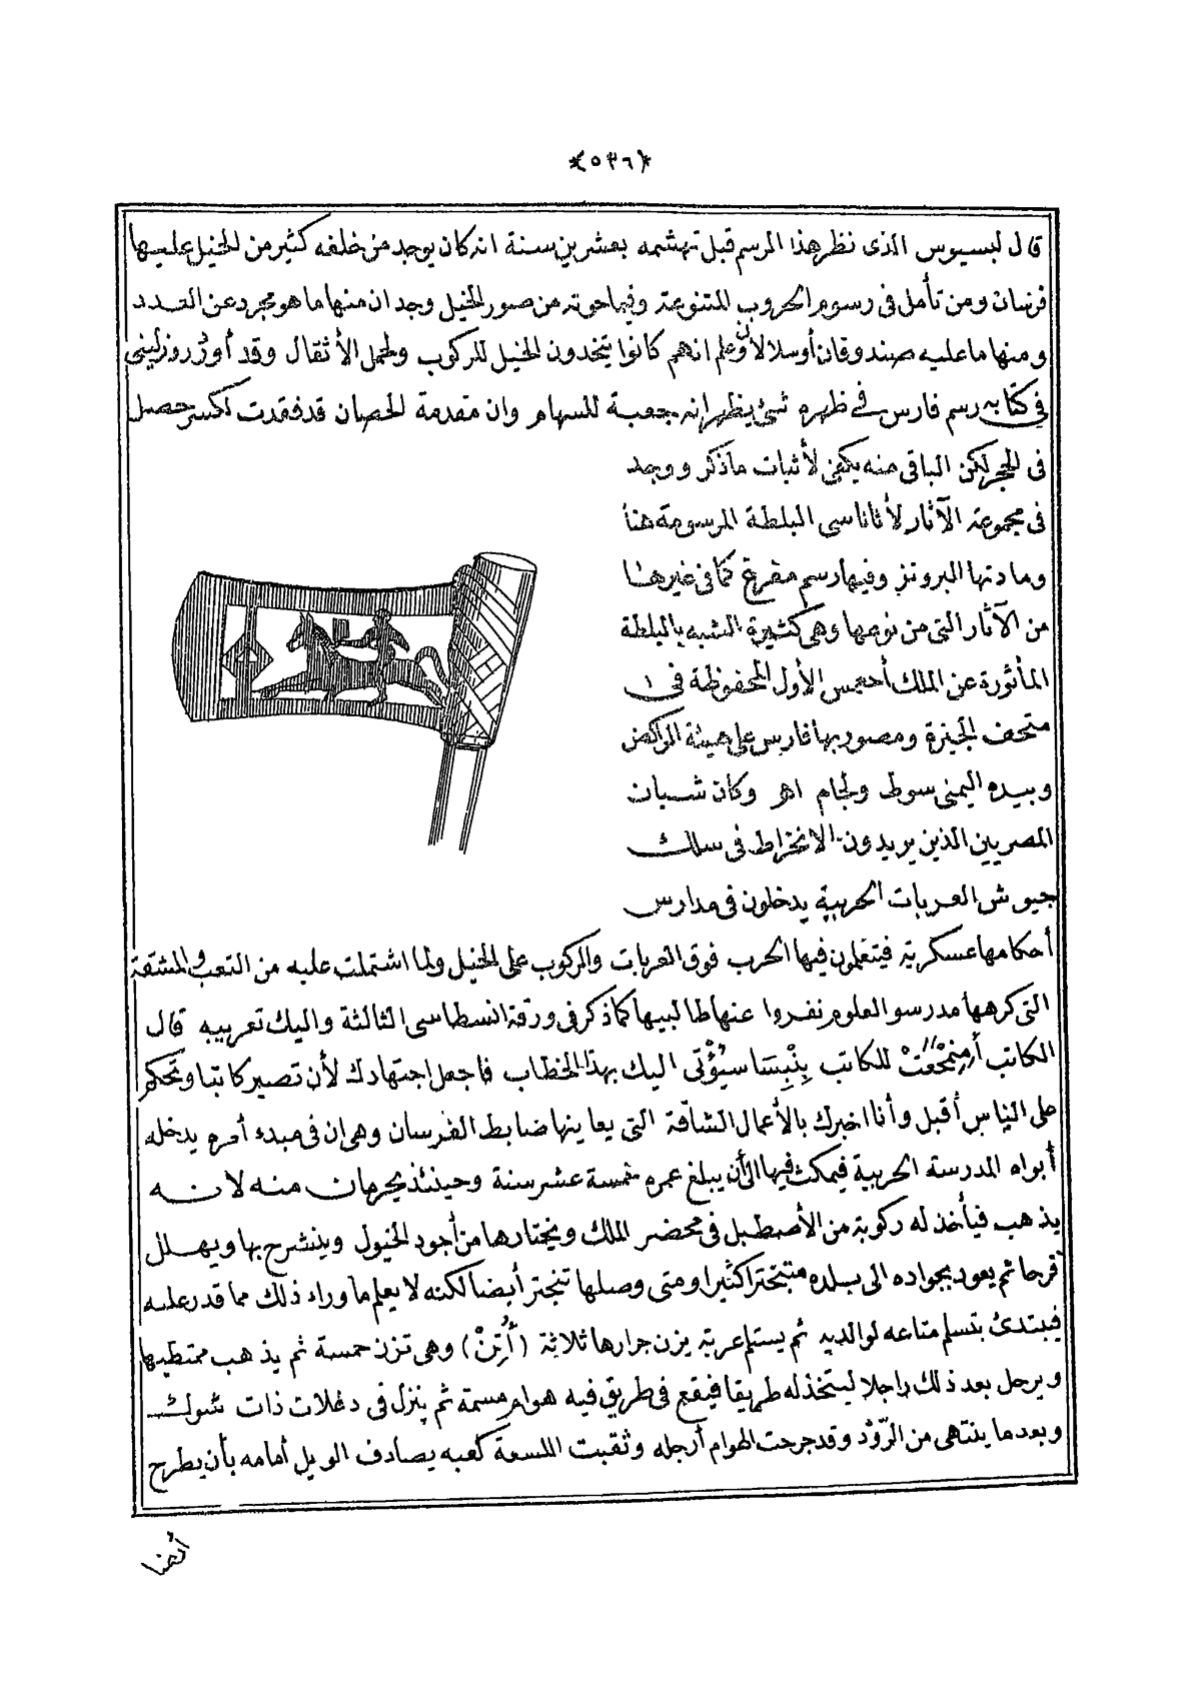 ﴿٥٣٦﴾
قال لبسيوس الذى نظر هذا الرسم قبل تهشمه بعشرين سنة انه كان يوجد من خلفه كثير من الخيل عليها
فرسان ومن تأمل فى رسوم الحروب المتنوعة وفيما حوته من صور الخيل وجد ان منها ما هو مجرد عن العدد
ومنها ما عليه صندوقان أو سلالان وعلم انهم كانوا يتخذون الخيل للركوب ولحمل الأثقال وقد أورد روزلينى
فى كتابه رسم فارس فى ظهره شئ يظهر انه جعبة للسهام وان مقدمة الحصان قد فقدت لكسر حصل
فى الحجر لكن الباقى منه يكفى لأثبات ماذكر ووجد
فى مجموعة الآثار لأثاناسى البلطة المرسومة هنا
ومادتها البرونز وفيها رسم مفرغ كما فى غيرها
من الآثار التى من نوعها وهى كثيرة الشبه بالبلطة
المأثورة عن الملك أحعمس الأول المحفوظة فى
متحف الجيزة ومصور بها فارس على هيئة الراكض
وبيده اليمنى سوط ولجام اهر وكان شبان
المصريين الذين يريدون الانخراط فى سلك
جيوش العربات الحربية يدخلون فى مدارس
أحكامها عسكرية فيتعلمون فيها الحرب فوق العربات والركوب على الخيل ولما اشتملت عليه من التعب والمشقة
التى كرهها مدرسو العلوم نفروا عنها طالبيها كما ذكر فى ورقة انسطاسى الثالثة واليك تعريبه قال
الكاتب للكاتب بِنْبِسَا سيُؤْتى اليك بهذا الخطاب فاجعل اجتهادك لأن تصير كاتبا وتحكم
على الناس أقبل وأنا اخبرك بالأعمال الشاقة التى يعاينها ضابط الفرسان وهى ان فى مبدء أمره يدخله
أبواه المدرسة الحربية فيمكث فيها الى أن يبلغ عمره خمسة عشر سنة وحينئذ يحرمان منه لانه
يذهب فيأخذ له ركوبة من الأصطبل فى محضر الملك ويختارها من أجود الخيول وينشرح بها ويهلل
فرحا ثم يعود بجواده الى بلده متبخترا كثيرا ومتى وصلها تبختر أيضا لكنه لا يعلم ما وراء ذلك مما قدر عليه
فيبتدئ بتسلم متاعه لوالديه ثم يستلم عربة يزن جرارها ثلاثة (أُتِنْ) وهى تزن خمسة ثم يذهب ممتطيها
ويرحل بعد ذلك راجلا ليتخذ له طريقا فيقع فى طريق فيه هوام مسمة ثم ينزل فى دغلات ذات شوك
وبعد ما ينتهى من الرّوْد وقد جرحت الهوام أرجله وثقبت اللسعة كعبه يصادف الويل أمامه بأن يطرح